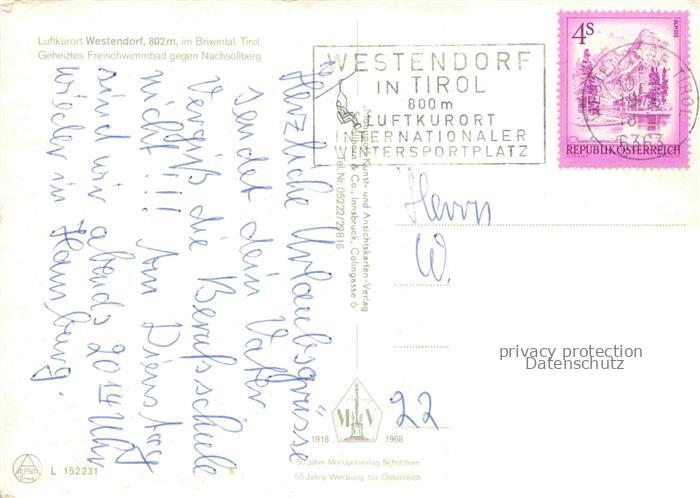 Luftkurort Westendorf, 802 m, im Brixental, Tirol
Geheiztes Freischwimmbad gegen Nachsöllberg
WESTENDORF
IN TIROL
800 m
LUFTKURORT
INTERNATIONALER
WINTERSPORTPLATZ
4S
ALMSEE
REPUBLIK ÖSTERREICH
6363
Herzliche Urlaubsgrüsse
sendet dein Vater
Vergiß die Berufsschule
nicht!!! Am Dienstag
sind wir abends 20 Uhr
wieder in Hamburg.
Kunst- und Ansichtskarten-Verlag
& Co., Innsbruck, Colingasse 6
Tel. Nr. 05222/29816
Herrn
W.
22
privacy protection
Datenschutz
M V
1918 1968
50 Jahre Monopolverlag Schöllhorn
50 Jahre Werbung für Österreich
ALPINA
L 152231